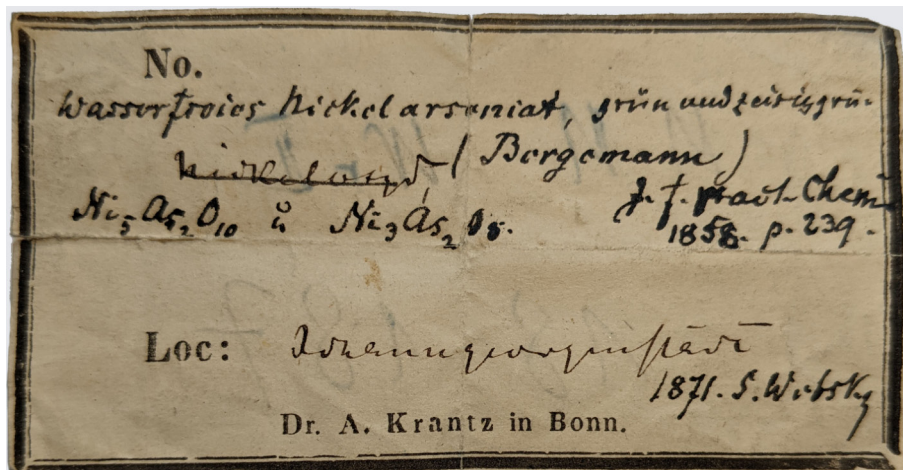 No.
Wasserfreies Nickelarseniat, grün und zeisiggrü-
Nickeloxyd, (Bergemann)
Ni₅As₂O₁₀ u Ni₃As₂O₈.
J. f. pract. Chem
1858. p. 239.
Loc: Johanngeorgenstadt
1871. S. Websky
Dr. A. Krantz in Bonn.